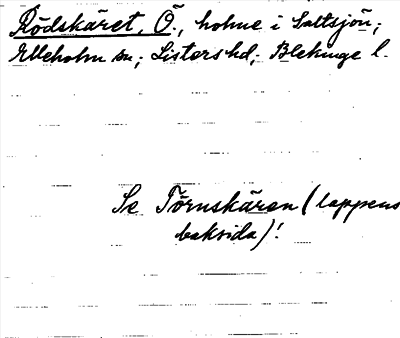 Rödskäret, Ö., holme i Saltsjön;
Elleholm sn; Listers hd; Blekinge l.
Se Törnskären (lappens
baksida)!